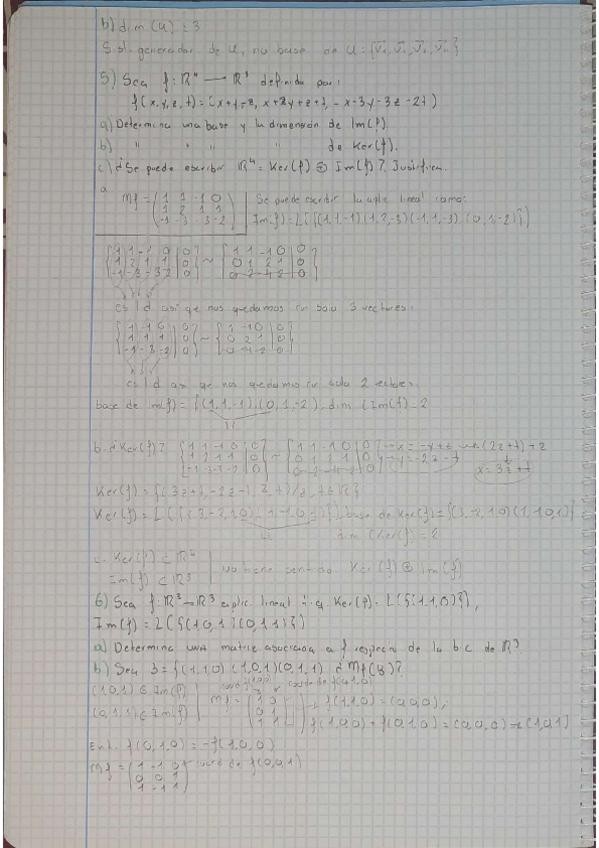 b) dim (U) = 3
Sist. generador de U, no base de U = {
5) Sea f: R⁴ → R³ definida por:
f(x,y,z,t) = (x+y-z, x+2y+z+t, -x-3y-3z-2t)
a) Determina una base y la dimensión de Im(f).
b) " " " " de Ker(f).
c) ¿Se puede escribir R⁴ = Ker(f) ⊕ Im(f)? Justifica.
a
Mf = (1 1 -1 0 | Se puede escribir la aplic lineal como:
1 2 1 1 | Im(f) = L({(1,1,-1)(1,2,-3)(-1,1,-3)(0,1,-2)})
-1 -3 -3 -2)
{1 1 -1 0 | 0 ~ {1 1 -1 0 | 0
1 2 1 1 | 0 0 1 2 1 | 0
-1 -3 -3 -2 | 0} 0 -2 -4 -2 | 0}
es ld así que nos quedamos con solo 3 vectores:
{1 -1 0 | 0 ~ {1 -1 0 | 0
1 1 1 | 0 0 2 1 | 0
-1 -3 -2 | 0} 0 -4 -2 | 0}
es ld así que nos quedamos con solo 2 vectores
base de Im(f) = {(1,1,-1),(0,1,-2)}, dim (Im(f)) = 2
li
b. ¿Ker(f)? {1 1 -1 0 | 0 ~ {1 1 -1 0 | 0 → x = -y+z (2z+t)+z
1 2 1 1 | 0 0 1 2 1 | 0 → y = -2z-t
-1 -3 -3 -2 | 0} x = 3z+t
Ker(f) = {(3z+t, -2z-t, z, t) / z, t ∈ R}
Ker(f) = L({(3,-2,1,0)(1,-1,0,1)}), base de Ker(f) = {(3,-2,1,0)(1,-1,0,1)}
li dim (Ker(f)) = 2
c. Ker(f) ⊂ R⁴ | no tiene sentido Ker(f) ⊕ Im(f)
Im(f) ⊂ R³
6) Sea f: R³ → R³ aplic. lineal t.q. Ker(f) = L({(1,1,0)}),
Im(f) = L({(1,0,1)(0,1,1)})
a) Determina una matriz asociada a f respecto de la b.c de R³.
b) Sea B = {(1,1,0)(1,0,1)(0,1,1)} ¿Mf(B)?
(1,0,1) ∈ Im(f) | coord de f(0,1,0)
(0,1,1) ∈ Im(f) | Mf = (1 0 | f(1,1,0) = (0,0,0);
0 1 | f(1,0,0) + f(0,1,0) = (0,0,0) → (1,0,1)
1 1
Ent. f(0,1,0) = -f(1,0,0)
Mf = (1 -1 0 coord de f(0,0,1)
0 0 1
1 -1 1)